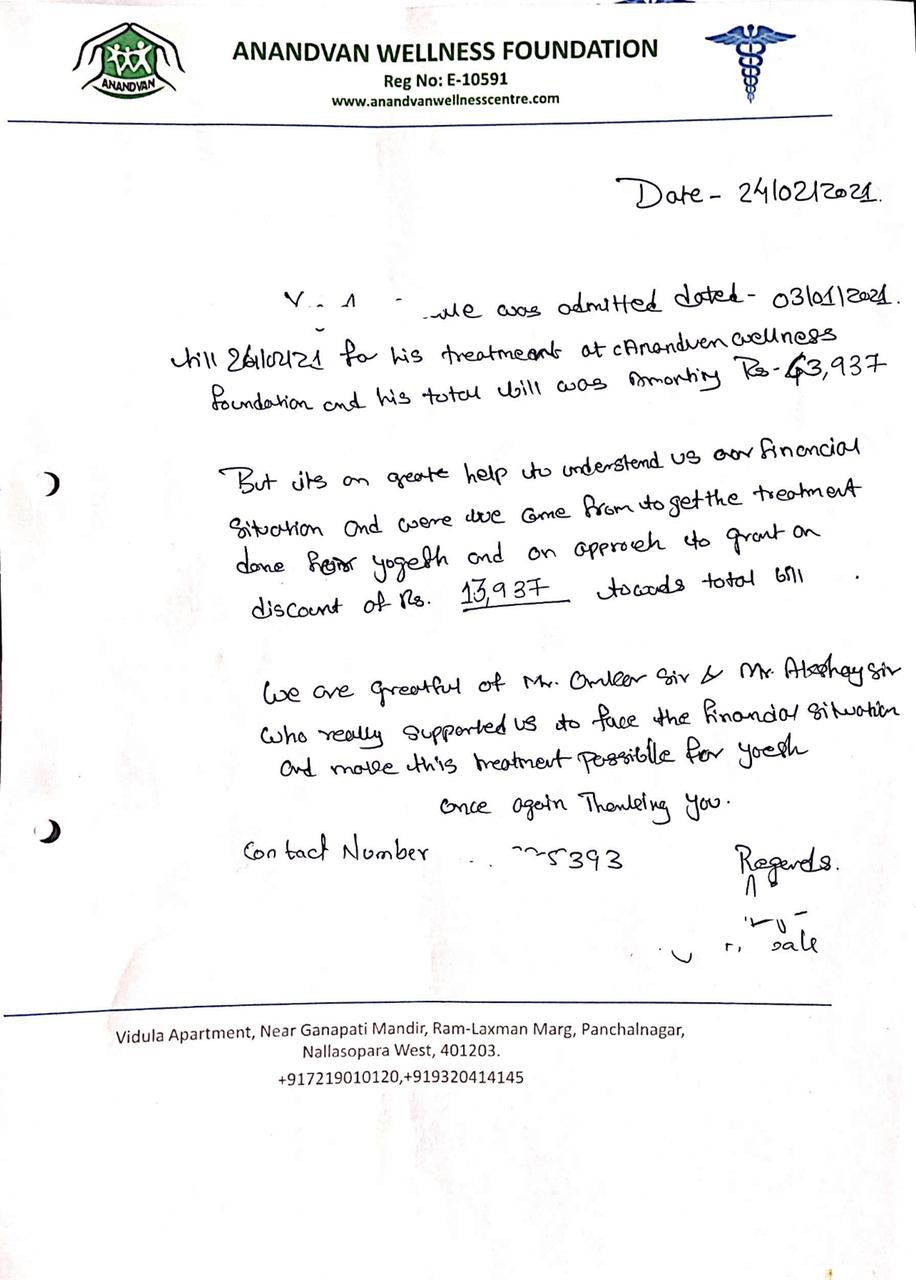 ANANDVAN
ANANDVAN WELLNESS FOUNDATION
Reg No: E-10591
www.anandvanwellnesscentre.com
Date - 24/02/2021.
was admitted dated - 03/01/2021.
till 26/02/21 for his treatment at Anandven wellness
foundation and his total bill was Amonting Rs - 43,937
But its an greate help to understand us our financial
situation and were we come from to get the treatment
done for yogesh and an approch to grant an
discount of Rs. 13,937 towods total bill
We are greatful of Mr. Omkar Sir & Mr. Akshay sir
who really supported us to face the financial situation
and make this treatment possible for yoesh
once again Thanking you.
Contact Number 5393
Regards.
Vidula Apartment, Near Ganapati Mandir, Ram-Laxman Marg, Panchalnagar,
Nallasopara West, 401203.
+917219010120,+919320414145